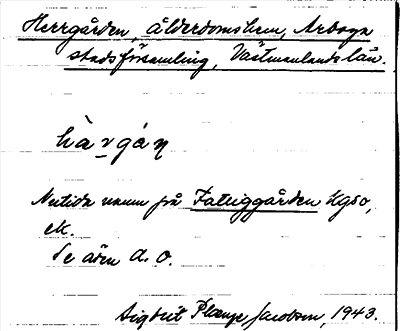 Herrgården, ålderdomshem, Arboga
stadsförsamling, Västmanlands län.
hàrgán
Nutida namn på Fattiggården Kgso,
ek.
Se även d. o.
Sigbrit Plænge Jacobson, 1943.